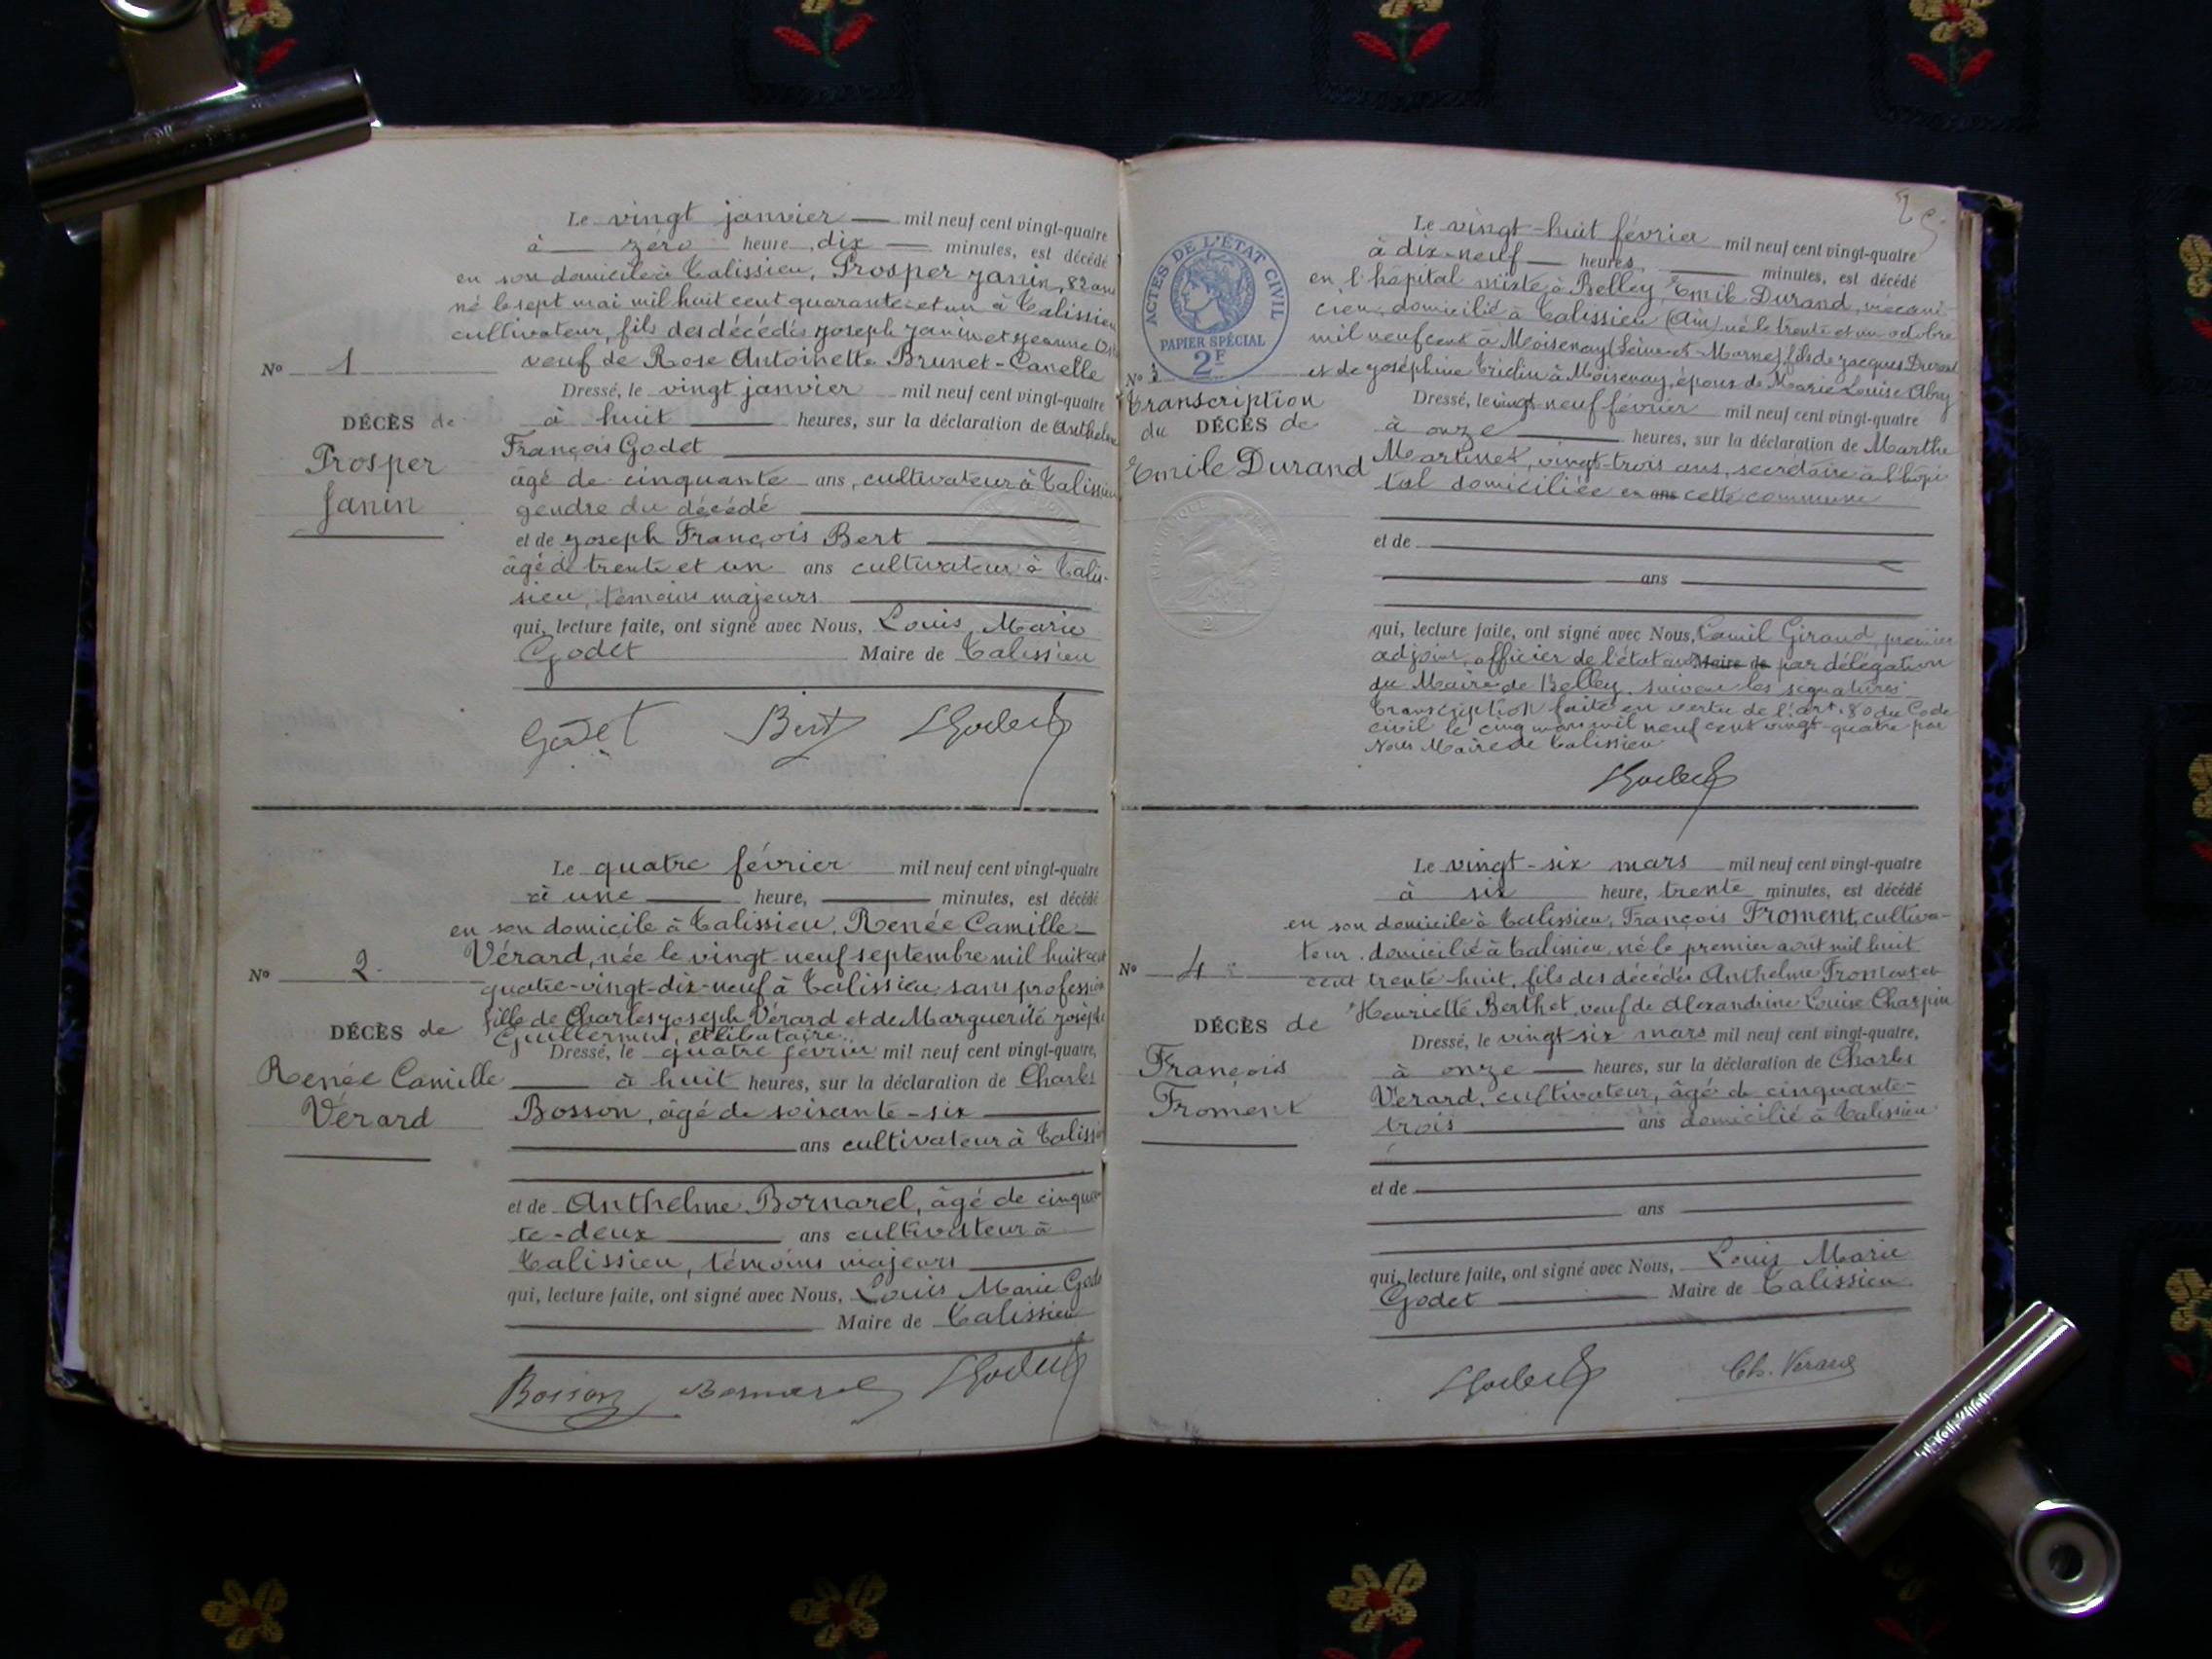 Le vingt janvier mil neuf cent vingt-quatre
à zéro heure, dix minutes, est décédé
en son domicile à Talissieu, Prosper Janin, 82 ans
né le sept mai mil huit cent quarante et un à Talissieu
cultivateur, fils des décédés Joseph Janin et Jeanne
veuf de Rose Antoinette Brunet-Canelle
No 1
Dressé, le vingt janvier mil neuf cent vingt-quatre
à huit heures, sur la déclaration de Anthelme
DÉCÈS de
Prosper
Janin
François Godet
âgé de cinquante ans, cultivateur à Talissieu
gendre du décédé
et de Joseph François Bert
âgé de trente et un ans cultivateur à Talis-
sieu, témoins majeurs
qui, lecture faite, ont signé avec Nous, Louis Marie
Godet Maire de Talissieu
Godet Bert LGodet
Le quatre février mil neuf cent vingt-quatre
à une heure, minutes, est décédé
en son domicile à Talissieu, Renée Camille
Vérard, née le vingt neuf septembre mil huit cent
No 2.
quatre-vingt-dix-neuf à Talissieu, sans profession
fille de Charles Joseph Vérard et de Marguerite Josèphe
Guillermin, célibataire.
DÉCÈS de
Renée Camille
Vérard
Dressé, le quatre février mil neuf cent vingt-quatre,
à huit heures, sur la déclaration de Charles
Bosson, âgé de soixante-six
ans cultivateur à Talissieu
et de Anthelme Bornarel, âgé de cinquan
te-deux ans cultivateur à
Talissieu, témoins majeurs
qui, lecture faite, ont signé avec Nous, Louis Marie Godet
Maire de Talissieu
Bosson Bornarel LGodet
ACTES DE L'ÉTAT CIVIL
PAPIER SPÉCIAL
2F
Le vingt-huit février mil neuf cent vingt-quatre
à dix-neuf heures, minutes, est décédé
en l'hôpital mixte à Belley, Emile Durand, mécani-
cien, domicilié à Talissieu (Ain) né le trente et un octobre
mil neuf cent à Moisenay (Seine-et-Marne) fils de Jacques Durand
No 3
et de Joséphine Tridin à Moisenay, époux de Marie Louise Abry
Transcription
du DÉCÈS de
Emile Durand
Dressé, le vingt neuf février mil neuf cent vingt-quatre
à onze heures, sur la déclaration de Marthe
Martinet, vingt-trois ans, secrétaire à l'hôpi
tal domiciliée en ans cette commune
et de
ans
qui, lecture faite, ont signé avec Nous, Camil Giraud, premier
adjoint, officier de l'état Maire de par délégation
du Maire de Belley, suivent les signatures
Transcription faite en vertu de l'art. 80 du Code
civil le cinq mars mil neuf cent vingt-quatre par
Nous Maire de Talissieu
LGodet
Le vingt-six mars mil neuf cent vingt-quatre
à six heure, trente minutes, est décédé
en son domicile à Talissieu, François Froment, cultiva-
teur, domicilié à Talissieu, né le premier août mil huit
No 4
cent trente-huit, fils des décédés Anthelme Froment et
Henriette Berthet, veuf de Alexandrine Louise Charpin
DÉCÈS de
François
Froment
Dressé, le vingt-six mars mil neuf cent vingt-quatre,
à onze heures, sur la déclaration de Charles
Vérard, cultivateur, âgé de cinquante-
trois ans domicilié à Talissieu
et de
ans
qui, lecture faite, ont signé avec Nous, Louis Marie
Godet Maire de Talissieu
LGodet Ch. Vérard